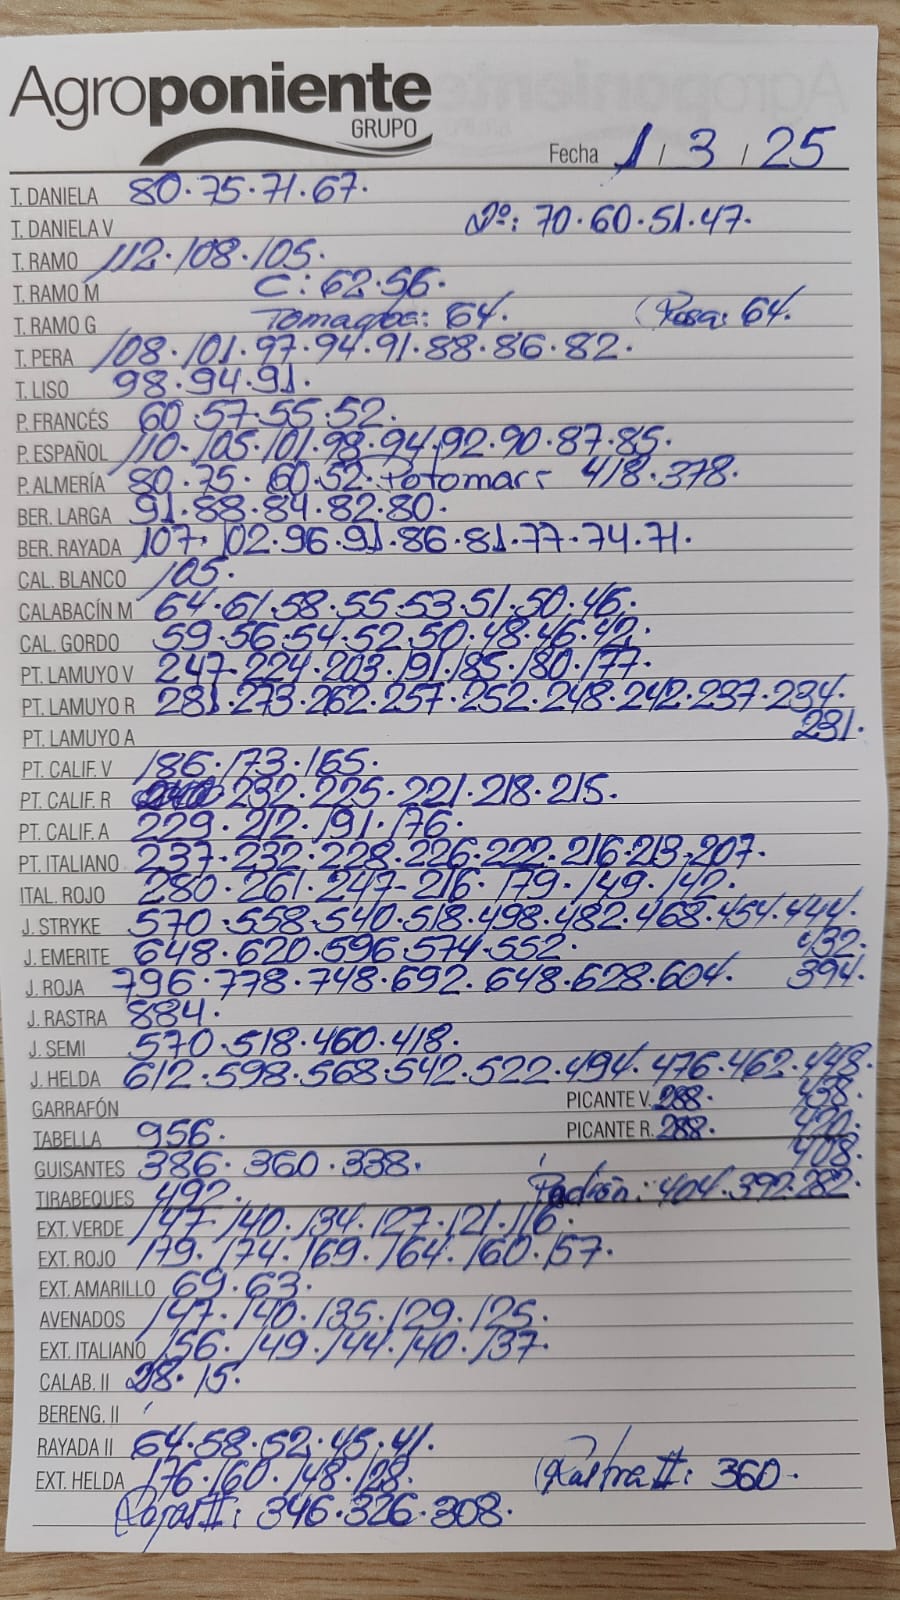 Agroponiente
GRUPO
Fecha 1 / 3 / 25
T. DANIELA 80.75.71.67.
T. DANIELA V 2º: 70.60.51.47.
T. RAMO 112.108.105.
T. RAMO M C: 62.56.
T. RAMO G 64. Rosa: 64.
T. PERA 108.101.97.94.91.88.86.82.
T. LISO 98.94.91.
P. FRANCÉS 60.57.55.52.
P. ESPAÑOL 110.105.101.98.94.92.90.87.85.
P. ALMERÍA 80.75.60.52. 418.378.
BER. LARGA 91.88.84.82.80.
BER. RAYADA 107.102.96.91.86.81.77.74.71.
CAL. BLANCO 105.
CALABACÍN M 64.61.58.55.53.51.50.46.
CAL. GORDO 59.56.54.52.50.48.46.42.
PT. LAMUYO V 247.224.203.191.185.180.177.
PT. LAMUYO R 281.273.262.257.252.248.242.237.234.
PT. LAMUYO A 231.
PT. CALIF. V 186.173.165.
PT. CALIF. R 232.225.221.218.215.
PT. CALIF. A 229.212.191.176.
PT. ITALIANO 237.232.228.226.222.216.213.207.
ITAL. ROJO 280.261.247.216.179.149.142.
J. STRYKE 570.558.540.518.498.482.468.454.444.
J. EMERITE 648.620.596.574.552. 432.
J. ROJA 796.778.748.692.648.628.604. 394.
J. RASTRA 884.
J. SEMI 570.518.460.418.
J. HELDA 612.598.568.542.522.494.476.462.448.
GARRAFÓN PICANTE V. 288. 438.
TABELLA 956. PICANTE R. 288. 420.
GUISANTES 386.360.338. 408.
TIRABEQUES 492. Padrón: 404.392.282.
EXT. VERDE 147.140.134.127.121.116.
EXT. ROJO 179.174.169.164.160.157.
EXT. AMARILLO 69.63.
AVENADOS 147.140.135.129.125.
EXT. ITALIANO 156.149.144.140.137.
CALAB. II 28.15.
BERENG. II
RAYADA II 64.58.52.45.41.
EXT. HELDA 176.160.148.128. Rastra II: 360.
Rojas II: 346.326.308.